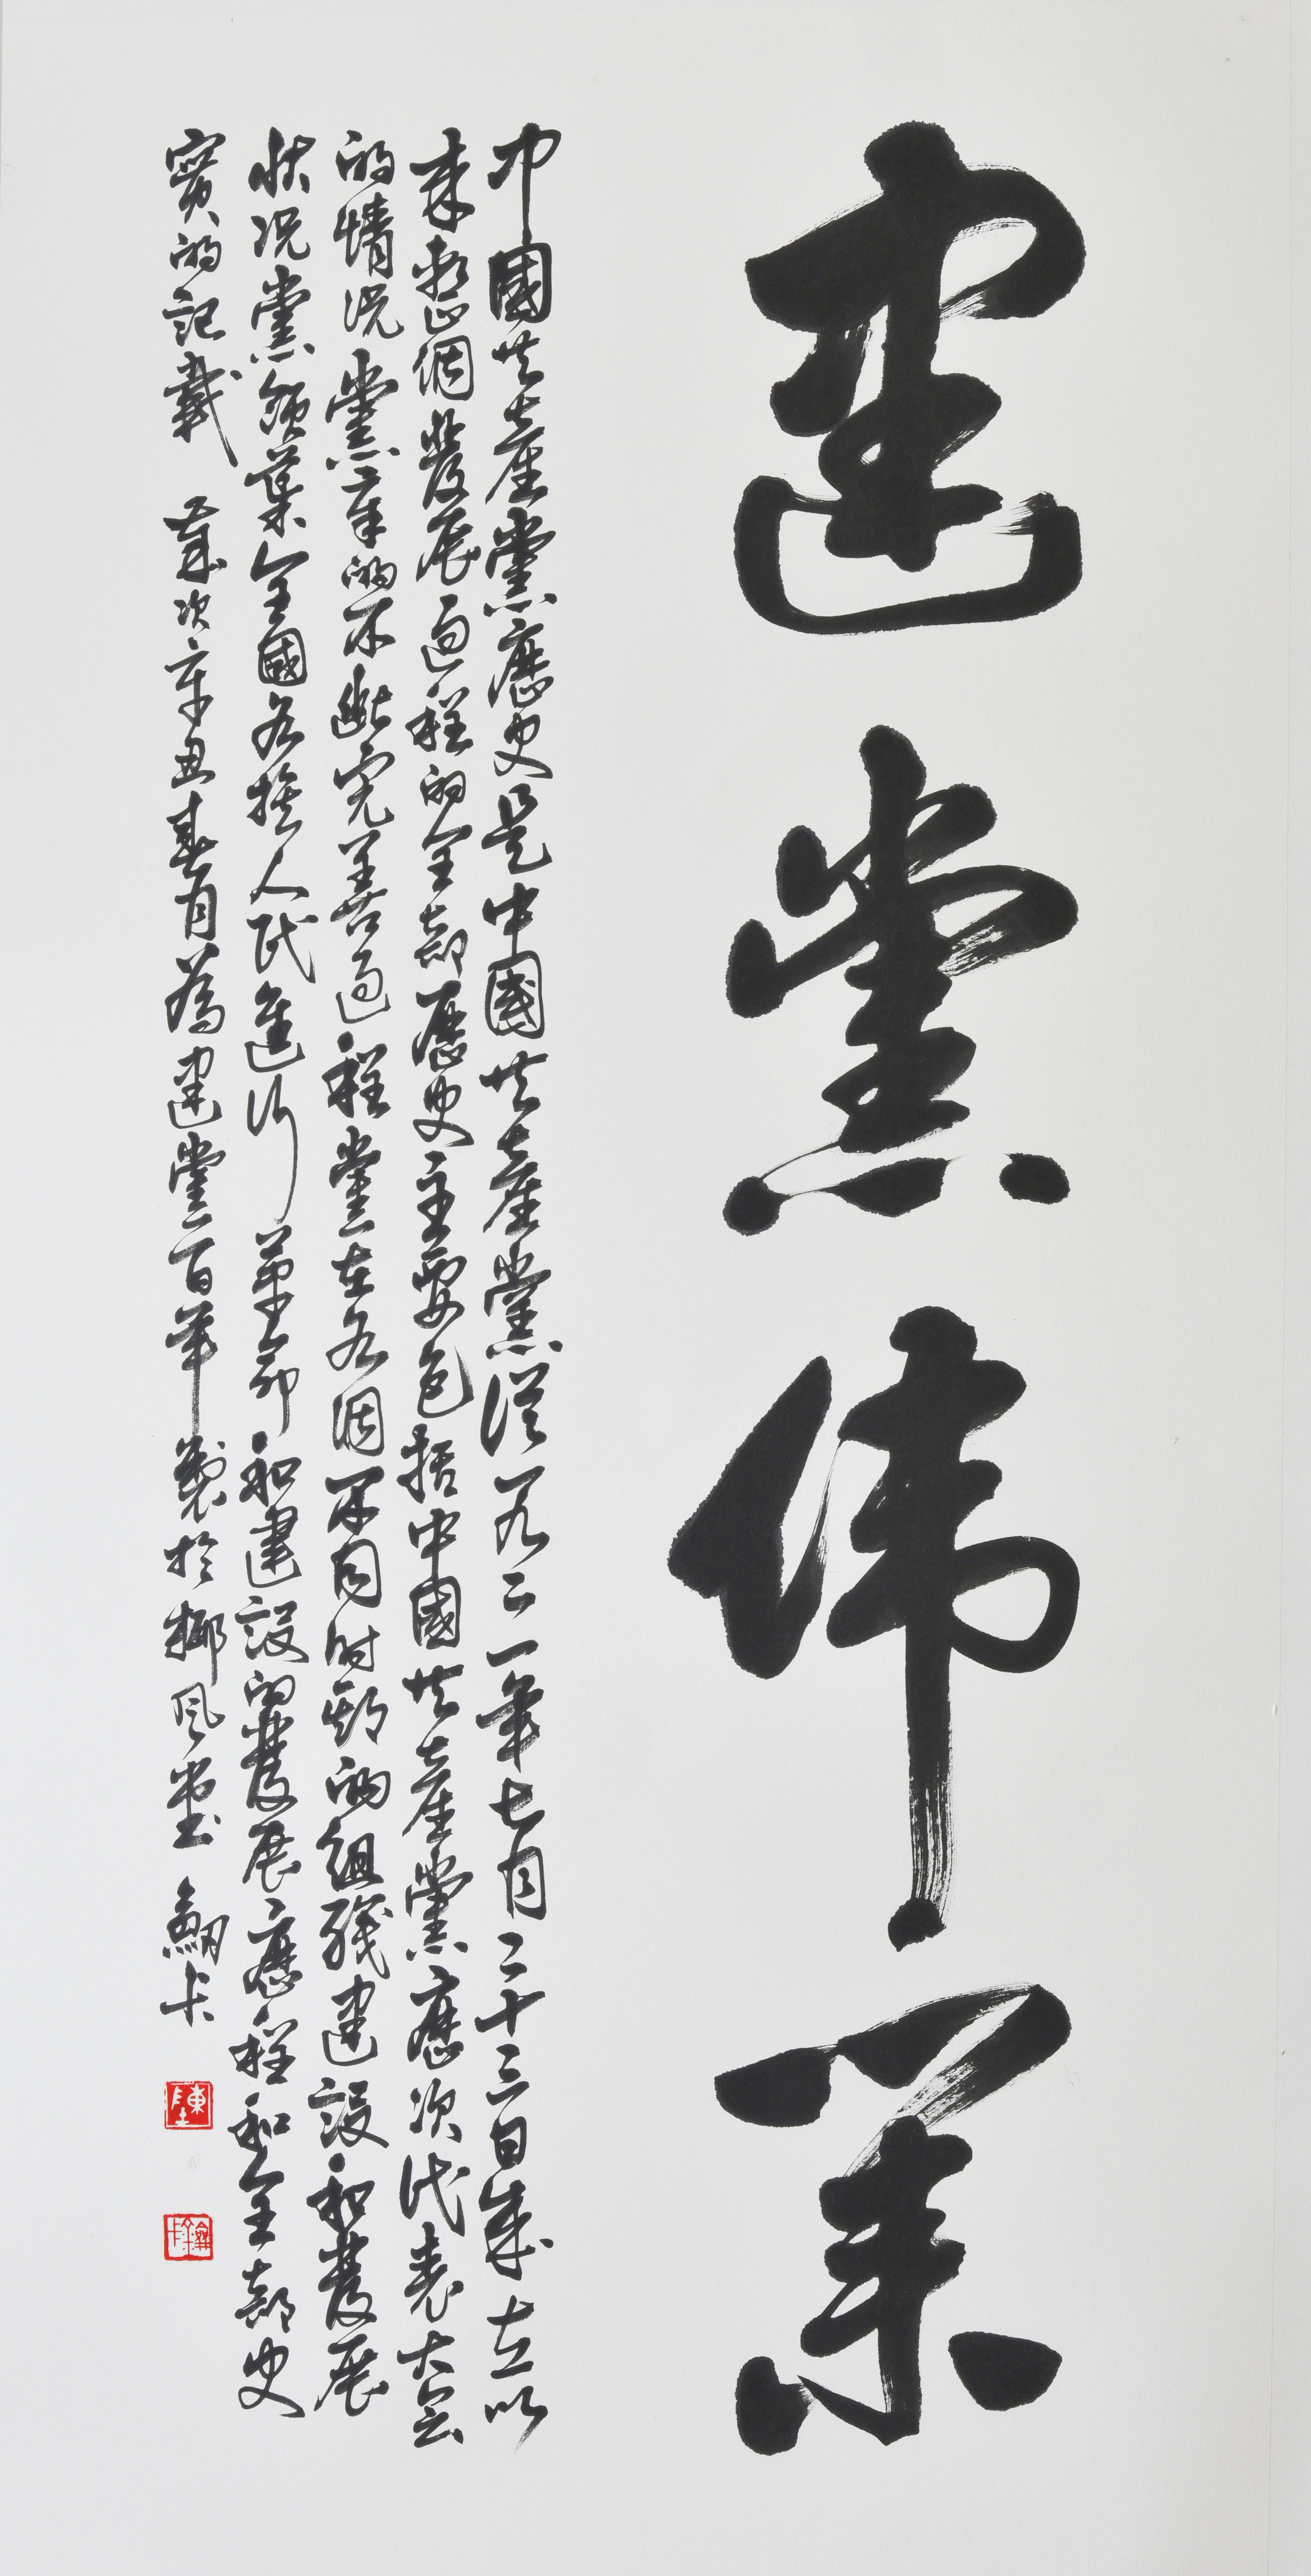 建黨伟業
中國共產黨歷史是中國共產黨從一九二一年七月二十三日成立以
來整個發展過程的全部歷史主要包括中國共產黨歷次代表大会
的情況黨章的不斷完善過程黨在各個不同時期的組織建設和發展
狀況黨領導全國各族人民進行革命和建設的發展歷程和全部史
實的記載 歲次辛丑春月為建黨百年製於椰风堂 卡